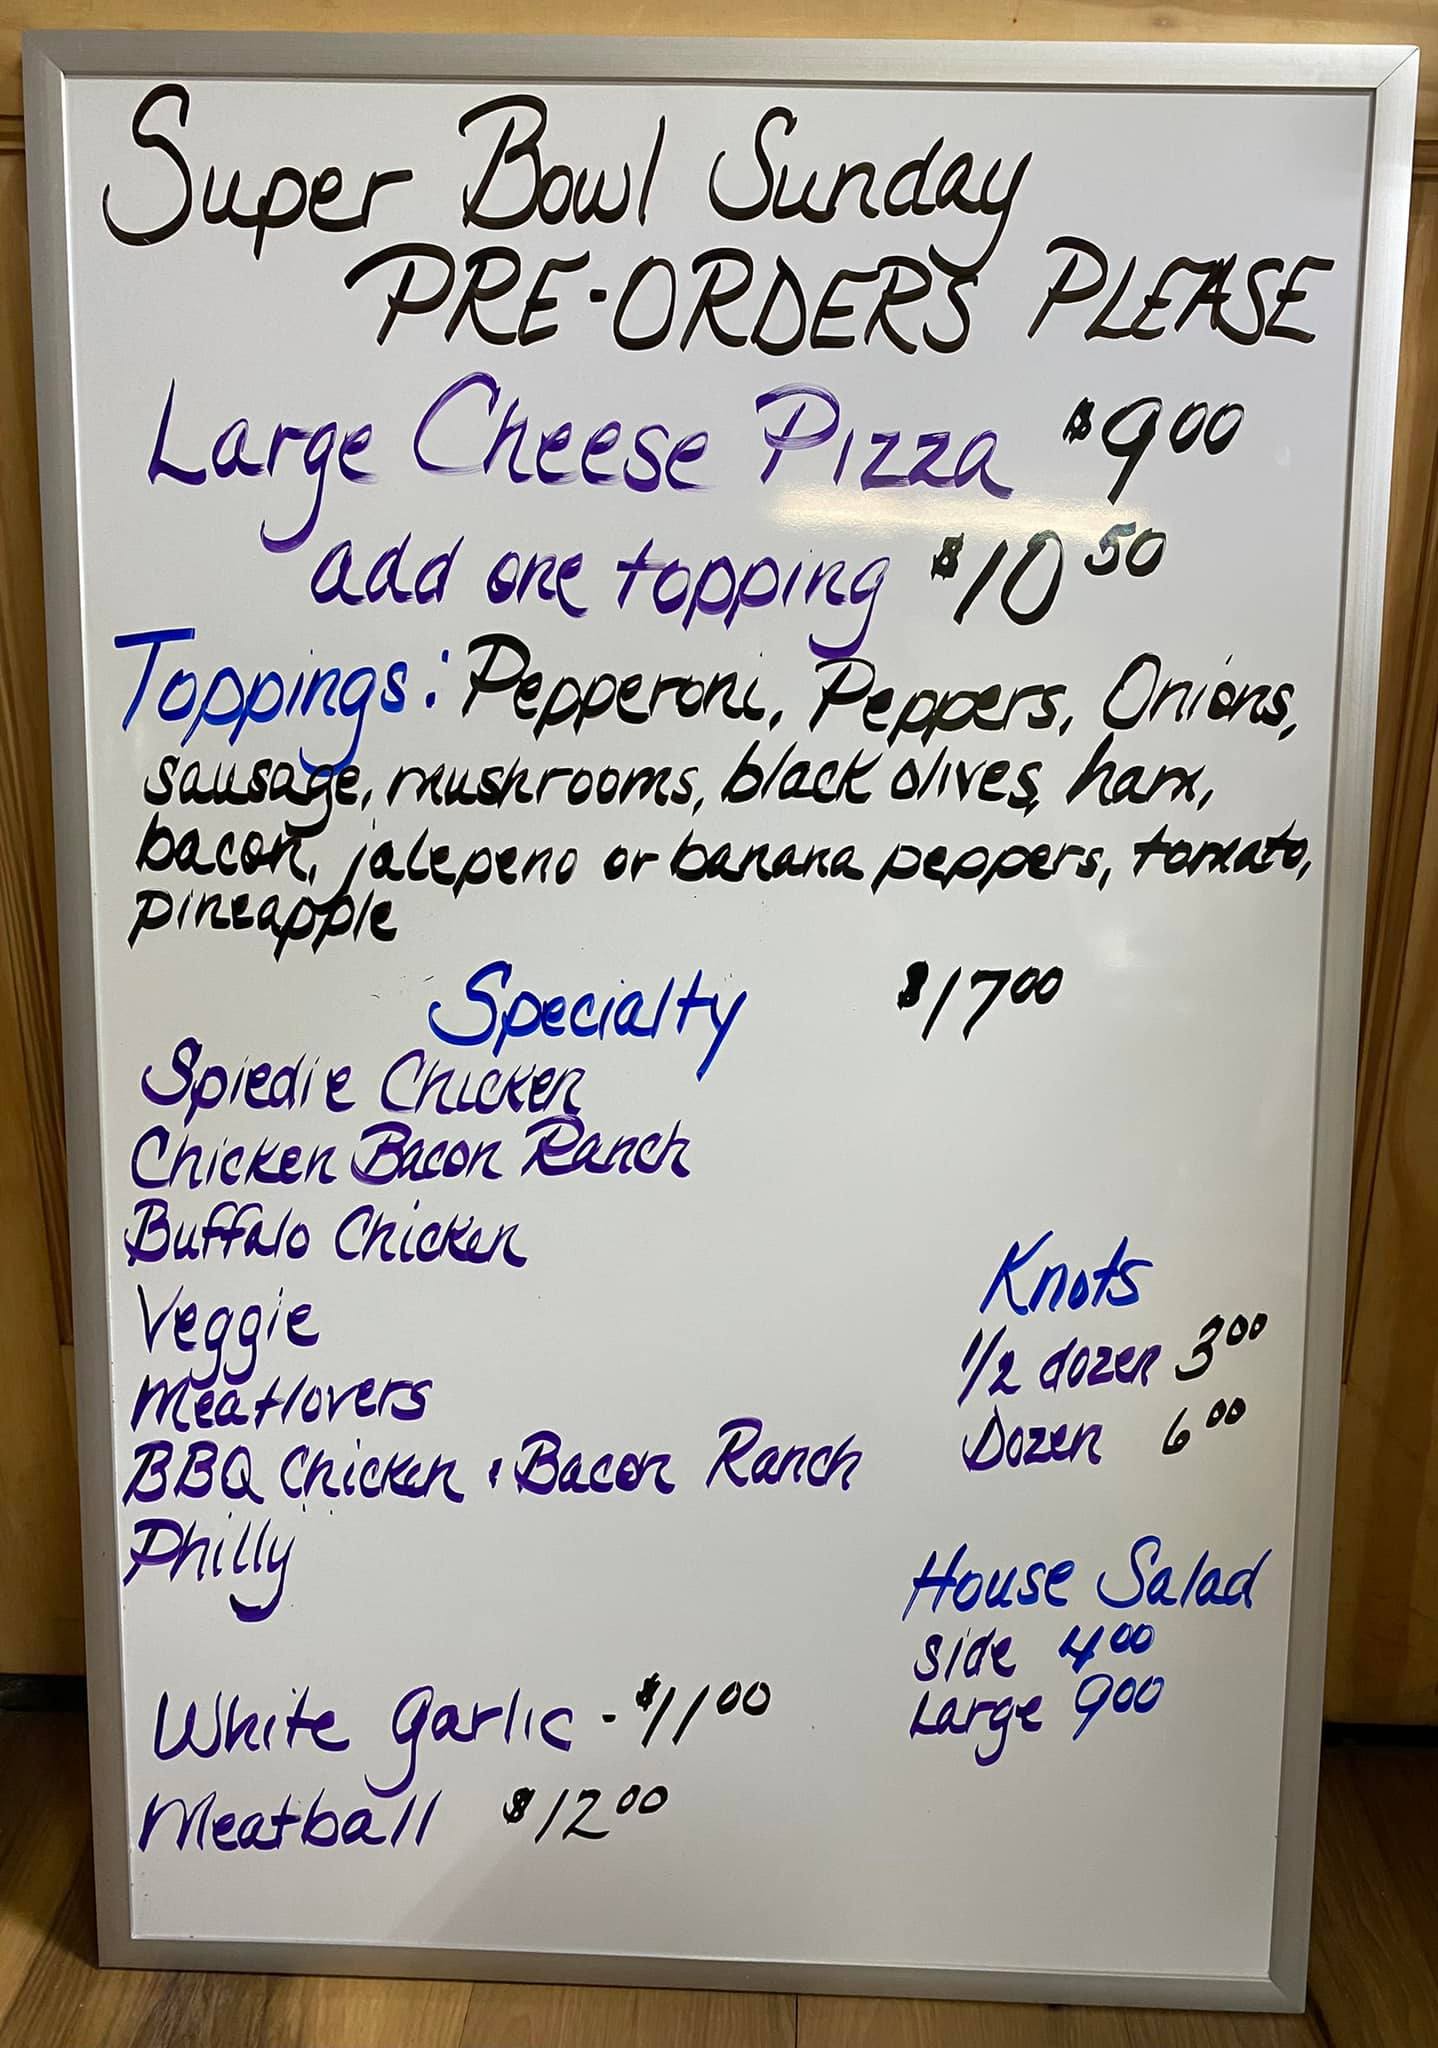 Super Bowl Sunday
PRE-ORDERS PLEASE
Large Cheese Pizza $9.00
add one topping $10.50
Toppings: Pepperoni, Peppers, Onions,
sausage, mushrooms, black olives, ham,
bacon, jalepeno or banana peppers, tomato,
pineapple
Specialty $17.00
Spiedie Chicken
Chicken Bacon Ranch
Buffalo Chicken
Veggie
Meatlovers
BBQ Chicken • Bacon Ranch
Philly
White Garlic - $11.00
Meatball $12.00
Knots
1/2 dozen 3.00
Dozen 6.00
House Salad
side 4.00
Large 9.00